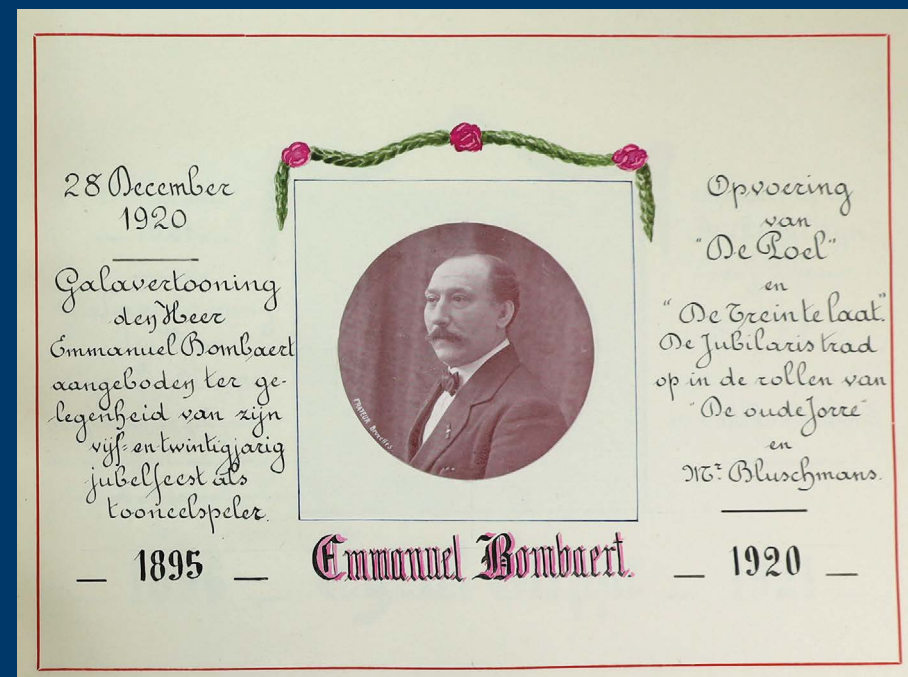 28 December
1920
Galavertooning
den Heer
Emmanuel Bombaert
aangeboden ter ge-
legenheid van zijn
vijf-en-twintigjarig
jubelfeest als
tooneelspeler.
1895
Emmanuel Bombaert.
Opvoering
van
"De Poel"
en
"De trein te laat".
De Jubilaris trad
op in de rollen van
"De oude Jorre"
en
Mr. Bluschmans.
1920
Bruxelles